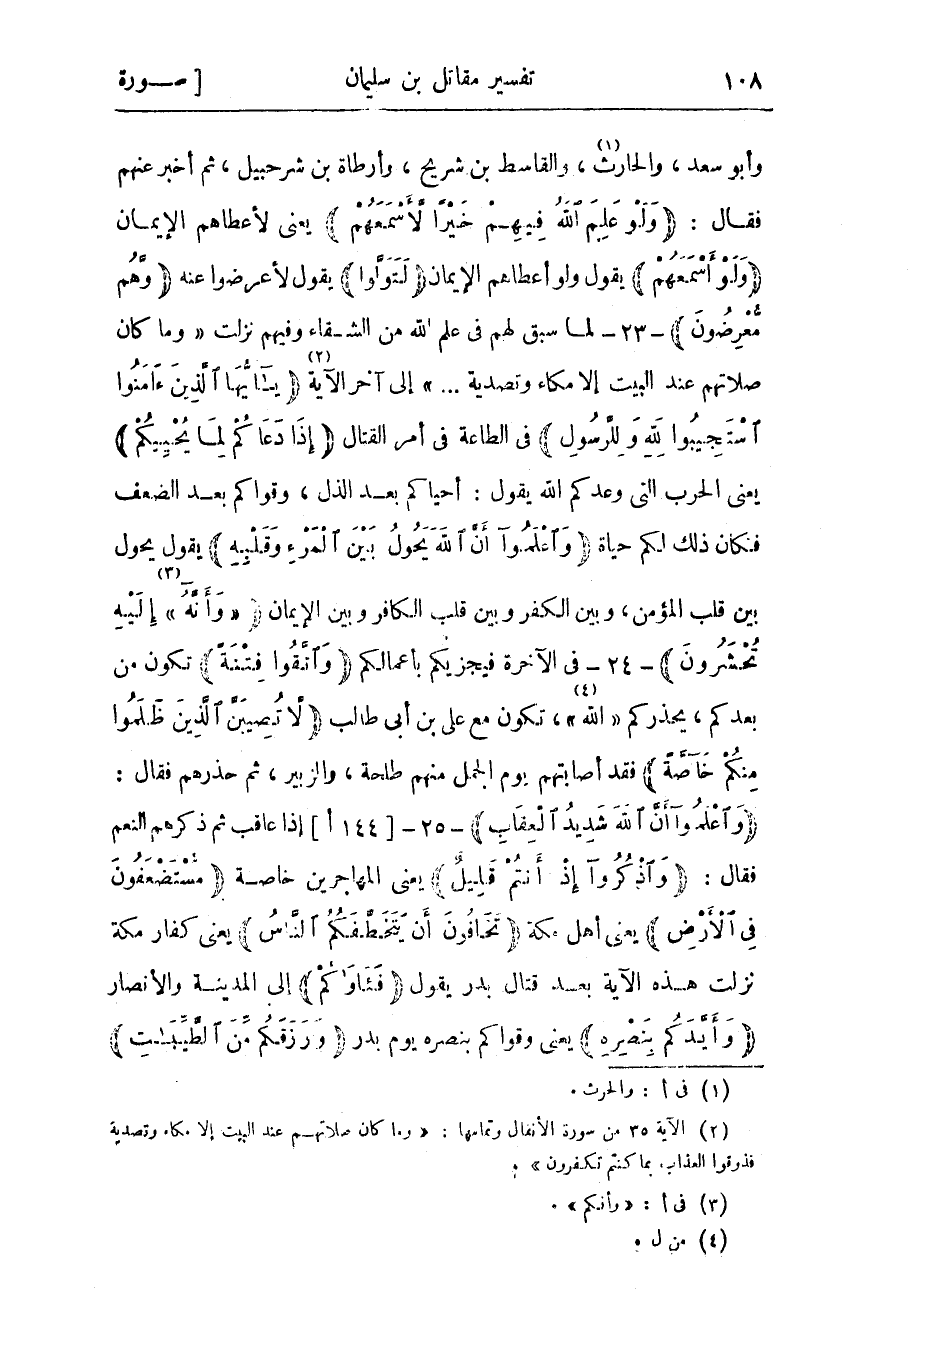 ١٠٨ تفسير مقاتل بن سليمان [ سـورة
وأبو سعد ، والحارث(١) ، والقاسط بن شريح ، وأرطاة بن شرحبيل ، ثم أخبر عنهم
فقـال : ﴿ وَلَوْ عَلِمَ ٱللَّهُ فِيهِمْ خَيْرًا لَّأَسْمَعَهُمْ ﴾ يعنى لأعطاهم الإيمـان
﴿ وَلَوْ أَسْمَعَهُمْ ﴾ يقول ولو أعطاهم الإيمان ﴿ لَتَوَلَّوا ﴾ يقول لأعرضوا عنه ﴿ وَّهُم
مُّعْرِضُونَ ﴾ - ٢٣ - لمـا سبق لهم فى علم الله من الشـقاء وفيهم نزلت « وما كان
صلاتهم عند البيت إلا مكاء وتصدية ... » إلى آخر الآية(٢) ﴿ يَـٰٓأَيُّهَا ٱلَّذِينَ ءَامَنُوا
ٱسْتَجِيبُوا لِلَّهِ وَلِلرَّسُولِ ﴾ فى الطاعة فى أمر القتال ﴿ إِذَا دَعَاكُمْ لِمَـا يُحْيِيكُمْ ﴾
يعنى الحرب التى وعدكم الله يقول : أحياكم بعـد الذل ، وقواكم بعـد الضعف
فكان ذلك لكم حياة ﴿ وَٱعْلَمُوٓا أَنَّ ٱللَّهَ يَحُولُ بَيْنَ ٱلْمَرْءِ وَقَلْبِهِ ﴾ يقول يحول
بين قلب المؤمن ، وبين الكفر وبين قلب الكافر وبين الإيمان ﴿ « وَأَنَّهُٓ »(٣) إِلَيْهِ
تُحْشَرُونَ ﴾ - ٢٤ - فى الآخرة فيجزيكم بأعمالكم ﴿ وَٱتَّقُوا فِتْنَةً ﴾ تكون من
بعدكم ، يحذركم « الله »(٤) ، تكون مع على بن أبى طالب ﴿ لَّا تُصِيبَنَّ ٱلَّذِينَ ظَلَمُوا
مِنكُمْ خَآصَّةً ﴾ فقد أصابتهم يوم الجمل منهم طلحة ، والزبير ، ثم حذرهم فقال :
﴿ وَٱعْلَمُوٓا أَنَّ ٱللَّهَ شَدِيدُ ٱلْعِقَابِ ﴾ - ٢٥ - [ ١٤٤ أ ] إذا عاقب ثم ذكرهم النعم
فقال : ﴿ وَٱذْكُرُوٓا إِذْ أَنتُمْ قَلِيلٌ ﴾ يعنى المهاجرين خاصـة ﴿ مُّسْتَضْعَفُونَ
فِى ٱلْأَرْضِ ﴾ يعنى أهل مكة ﴿ تَخَافُونَ أَن يَتَخَطَّفَكُمُ ٱلنَّاسُ ﴾ يعنى كفار مكة
نزلت هـذه الآية بعـد قتال بدر يقول ﴿ فَـَٔاوَىٰكُمْ ﴾ إلى المدينـة والأنصار
﴿ وَأَيَّدَكُم بِنَصْرِهِ ﴾ يعنى وقواكم بنصره يوم بدر ﴿ وَرَزَقَكُم مِّنَ ٱلطَّيِّبَـٰتِ ﴾
(١) فى أ : والحرث .
(٢) الآية ٣٥ من سورة الأنفال وتمامها : « وما كان صلاتهـم عند البيت إلا مكاء وتصدية
فذوقوا العذاب بما كنتم تكفرون » .
(٣) فى أ : « وأنكم » .
(٤) من ل .